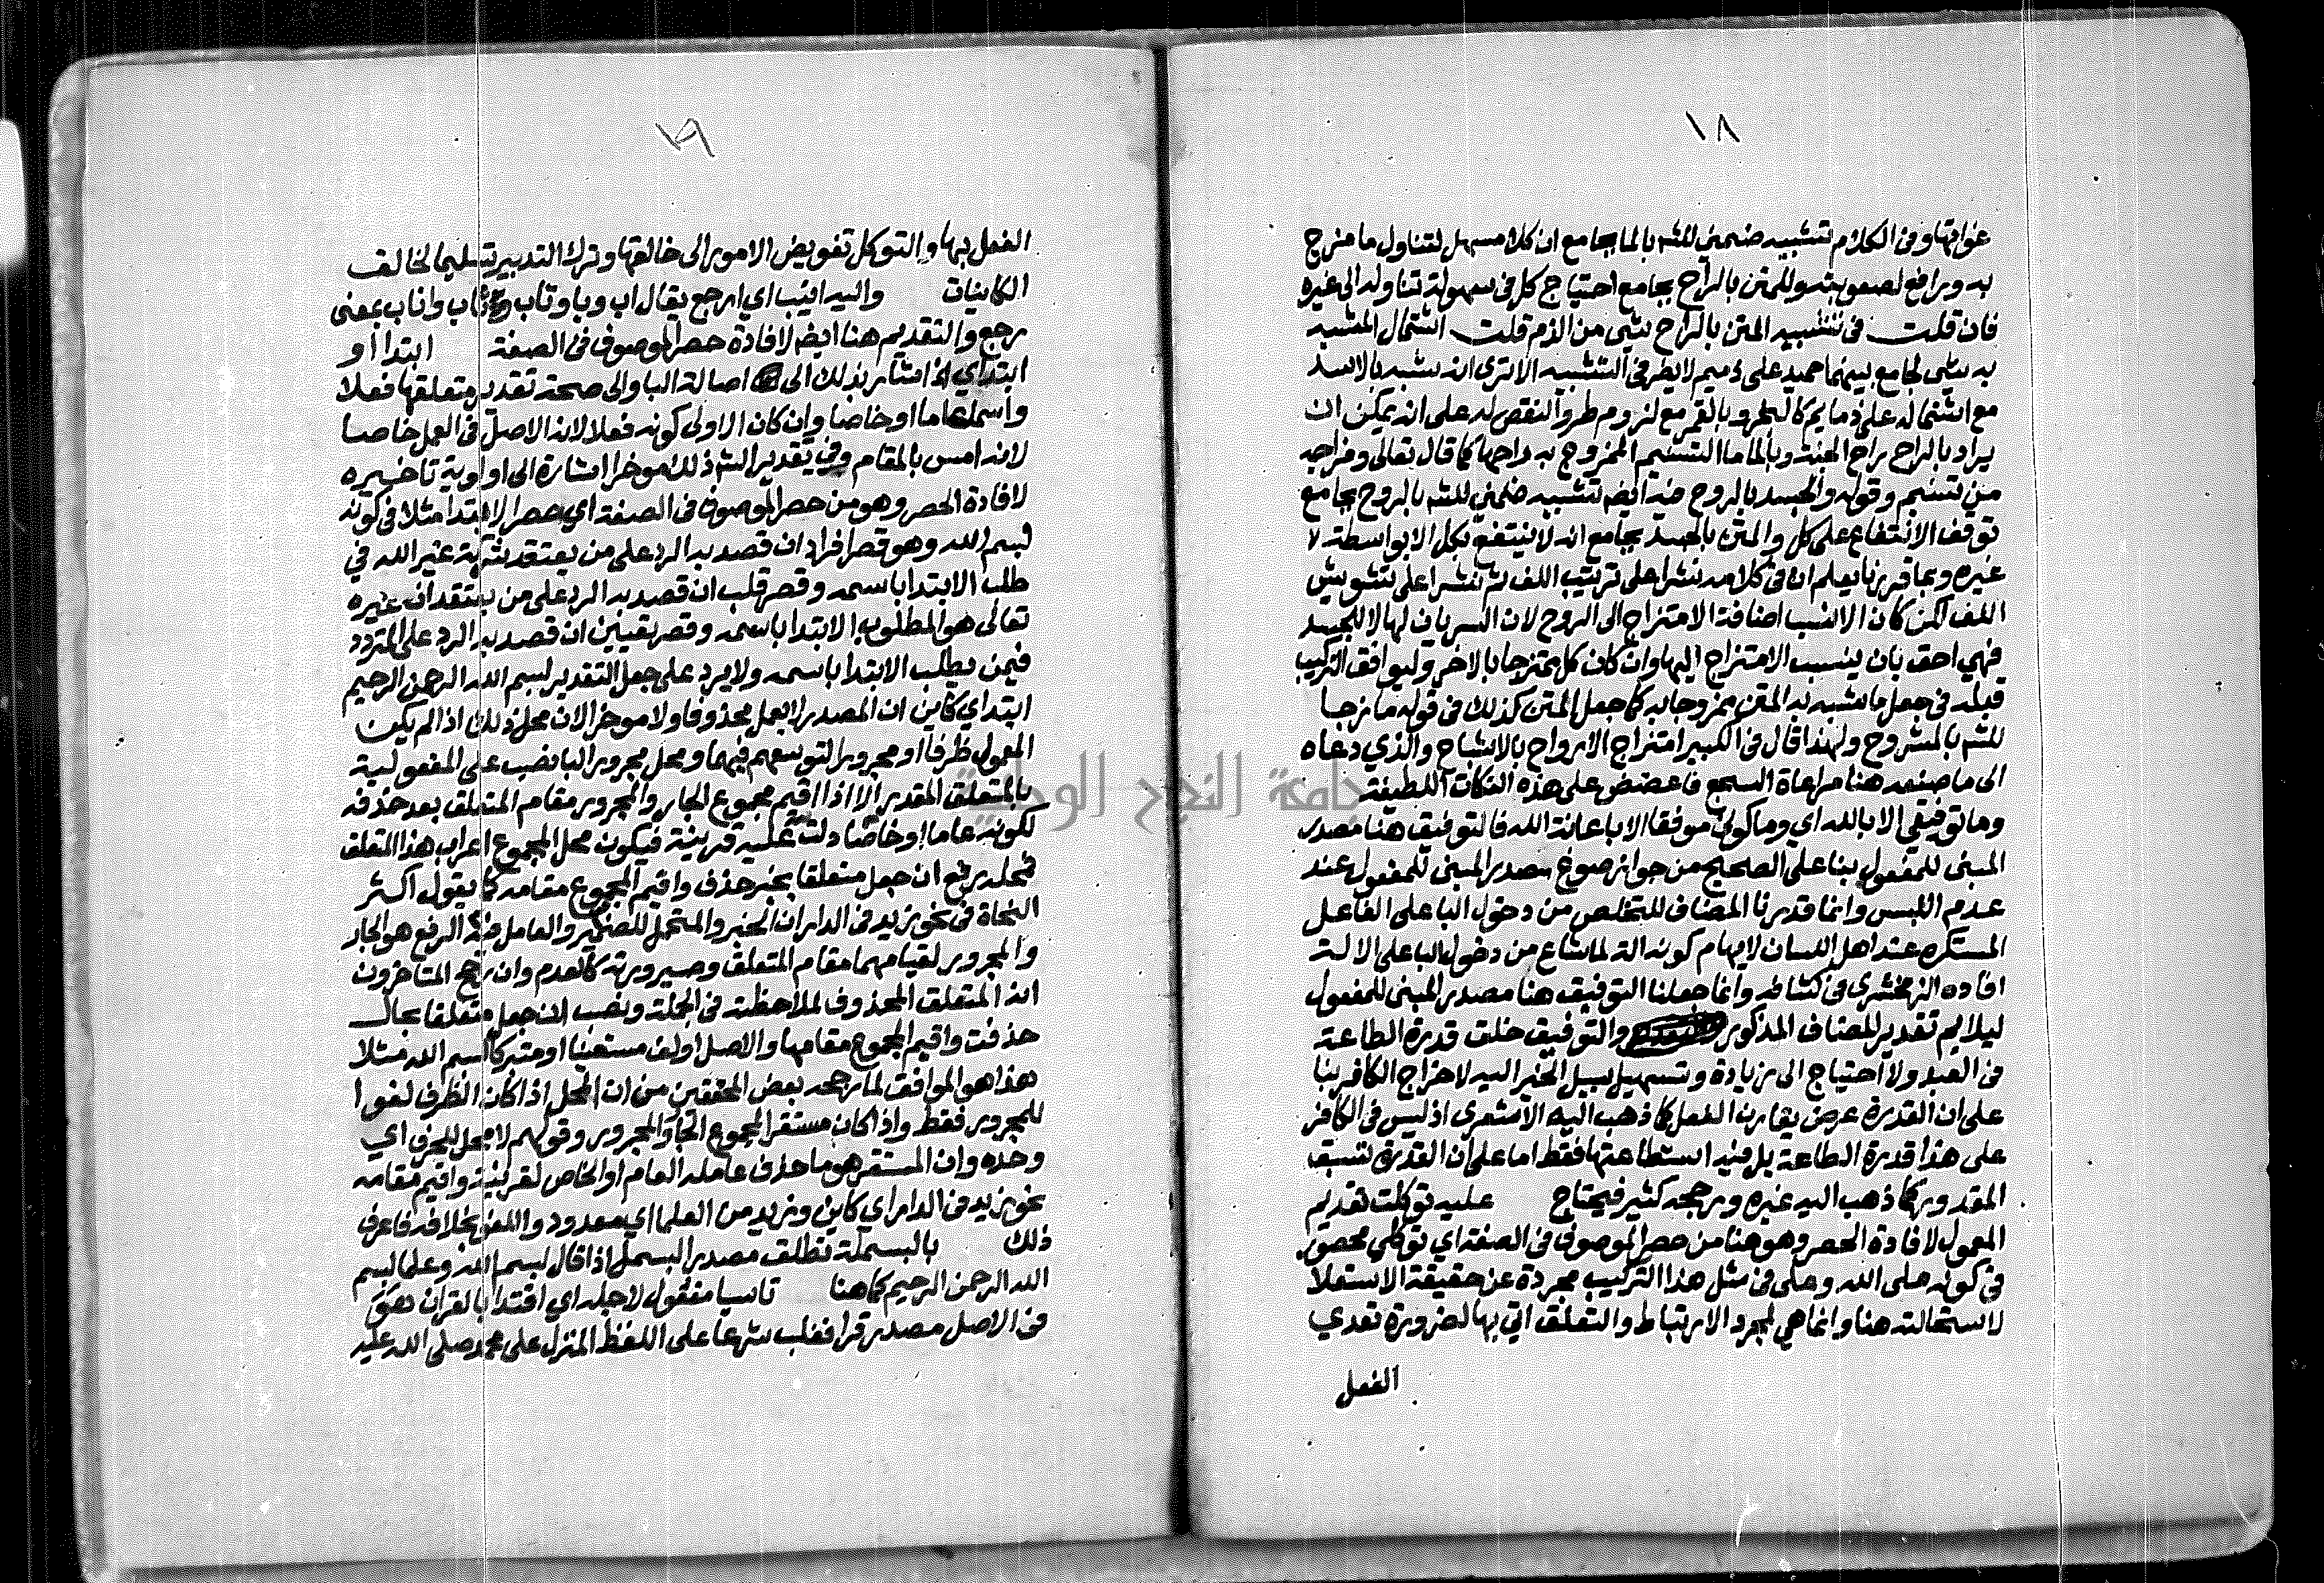 ١٨
عواقبها وفى الكلام تشبيه ضمني للشم بالما بجامع ان كلا مسهل لتناول ما مزج
به ورافع لصعوبته وللمتن بالراح بجامع احتياج كل فى سهولة تناوله الى غيره
فان قلت فى تشبيه المتن بالراح شى من الذم قلت اشتمال المشبه
به على لجامع بينهما حميد على ذميم لا يضر فى التشبيه الا ترى انه يشبه بالاسد
مع اشتماله على ذمايم كالبخر وبالقمر مع لزوم طرو النقص له على انه يمكن ان
يراد بالراح راح الجنة وبالما ما التسنيم الممزوج به راحها كما قال تعالى ومزاجه
من تسنيم وقوله والجسد بالروح فيه ايضم تشبيه ضمني للشم بالروح بجامع
توقف الانتفاع على كل والمتن بالجسد بجامع انه لا ينتفع بكل الا بواسطة
غيره وبما قررنا يعلم ان فى كلامه نشرا على ترتيب اللف ثم نشرا على تشويش
اللف لكن كان الانسب اضافة الامتزاج الى الروح لان السريان لها لا للجسد
فهي احق بان ينسب الامتزاج اليها وان كان كل ممتزجا بالاخر وليوافق التركيب
قبله فى جعل ما شبه به المتن ممزوجا به كما جعل المتن كذلك فى قوله مازجا
للشم بالمشروح ولهذا قال فى الكبير امتزاج الارواح بالاشباح والذي دعاه
الى ما صنعه هنا مراعاة السجع فاعضض على هذه النكات اللطيفة
وما توفيقي الا بالله اي وما كوني موفقا الا باعانة الله فالتوفيق هنا مصدر
المبنى للمفعول بنا على الصحيح من جواز صوغ مصدر المبنى للمفعول عند
عدم اللبس وانما قدرنا المضاف للتخلص من دخول البا على الفاعل
المستكره عند اهل اللسان لايهام كونه الة لما شاع من دخول البا على الالة
افاده الزمخشري فى كشافه وانما جعلنا التوفيق هنا مصدر المبنى للمفعول
ليلايم تقدير المضاف المذكور والتوفيق خلق قدرة الطاعة
فى العبد ولا احتياج الى زيادة وتسهيل سبيل الخير اليه لاخراج الكافر بنا
على ان القدرة عرض يقارن الفعل كما ذهب اليه الاشعرى اذ ليس فى الكافر
على هذا قدرة الطاعة بل فيه استطاعتها فقط اما على ان القدرة تسبق
المقدور كما ذهب اليه غيره ورجحه كثير فيحتاج عليه توكلت تقديم
المعمول لافادة الحصر وهو هنا من حصر الموصوف فى الصفة اي توكلي محصور
فى كونه على الله وعلى فى مثل هذا التركيب مجردة عن حقيقة الاستعلا
لاستحالته هنا وانما هي لمجرد الارتباط والتعلق اتي بها لضرورة تعدي
الفعل
١٩
الفعل بها والتوكل تفويض الامور الى خالقها وترك التدبير تسليما لخالق
الكاينات واليه انيب اي ارجع يقال اب وبا وتاب وثاب واناب بمعنى
رجع والتقديم هنا ايضم لافادة حصر الموصوف فى الصفة ابتدا او
ابتداي اذ اشار بذلك الى اصالة البا والى صحة تقدير متعلقها فعلا
واسما عاما او خاصا وان كان الاولى كونه فعلا لانه الاصل فى العمل خاصا
لانه امس بالمقام وفي تقدير الشم ذلك موخرا اشارة الى اولوية تاخيره
لافادة الحصر وهو من حصر الموصوف فى الصفة اي حصر الابتدا مثلا فى كونه
بسم الله وهو قصر افراد ان قصد به الرد على من يعتقد شركة غير الله في
طلب الابتدا باسمه وقصر قلب ان قصد به الرد على من يعتقد ان غيره
تعالى هو المطلوب الابتدا باسمه وقصر تعيين ان قصد به الرد على المتردد
فيمن يطلب الابتدا باسمه ولا يرد على جعل التقدير بسم الله الرحمن الرحيم
ابتداي كاين ان المصدر لا يعمل محذوفا ولا موخرا لان محل ذلك اذا لم يكن
المعمول ظرفا او مجرورا لتوسعهم فيهما ومحل مجرور البا نصب على المفعولية
بالمتعلق المقدر الا اذا اقيم مجموع الجار والمجرور مقام المتعلق بعد حذفه
لكونه عاما او خاصا دلت عليه قرينة فيكون محل المجموع اعراب هذا المتعلق
فمحله رفع ان جعل متعلقا بخبر حذف واقيم المجموع مقامه كما يقول اكثر
النحاة فى نحو زيد فى الدار ان الخبر والمتحمل للضمير والعامل فيه الرفع هو الجار
والمجرور لقيامهما مقام المتعلق وصيرورته كالعدم وان رجح المتاخرون
انه المتعلق المحذوف لملاحظته فى الجملة ونصب ان جعل متعلقا بحال
حذفت واقيم المجموع مقامها والاصل اولف مستعينا او متبركا بسم الله مثلا
هذا هو الموافق لما رجحه بعض المحققين من ان المحل اذا كان الظرف لغوا
للمجرور فقط واذا كان مستقرا لمجموع الجار والمجرور وقولهم لا محل للحرف اي
وحده وان المستقر هو ما حذف عامله العام او الخاص لقرينة واقيم مقامه
نحو زيد فى الدار اي كاين وزيد من العلما اي معدود واللغو بخلافه فاعرف
ذلك بالبسملة تطلق مصدر البسمل اذا قال بسم الله وعلى بسم
الله الرحمن الرحيم كما هنا تاسيا مفعول لاجله اي اقتدا بالقران هو
فى الاصل مصدر قرا فغلب شرعا على اللفظ المنزل على محمد صلى الله عليه
جامعة النجاح الوطنية